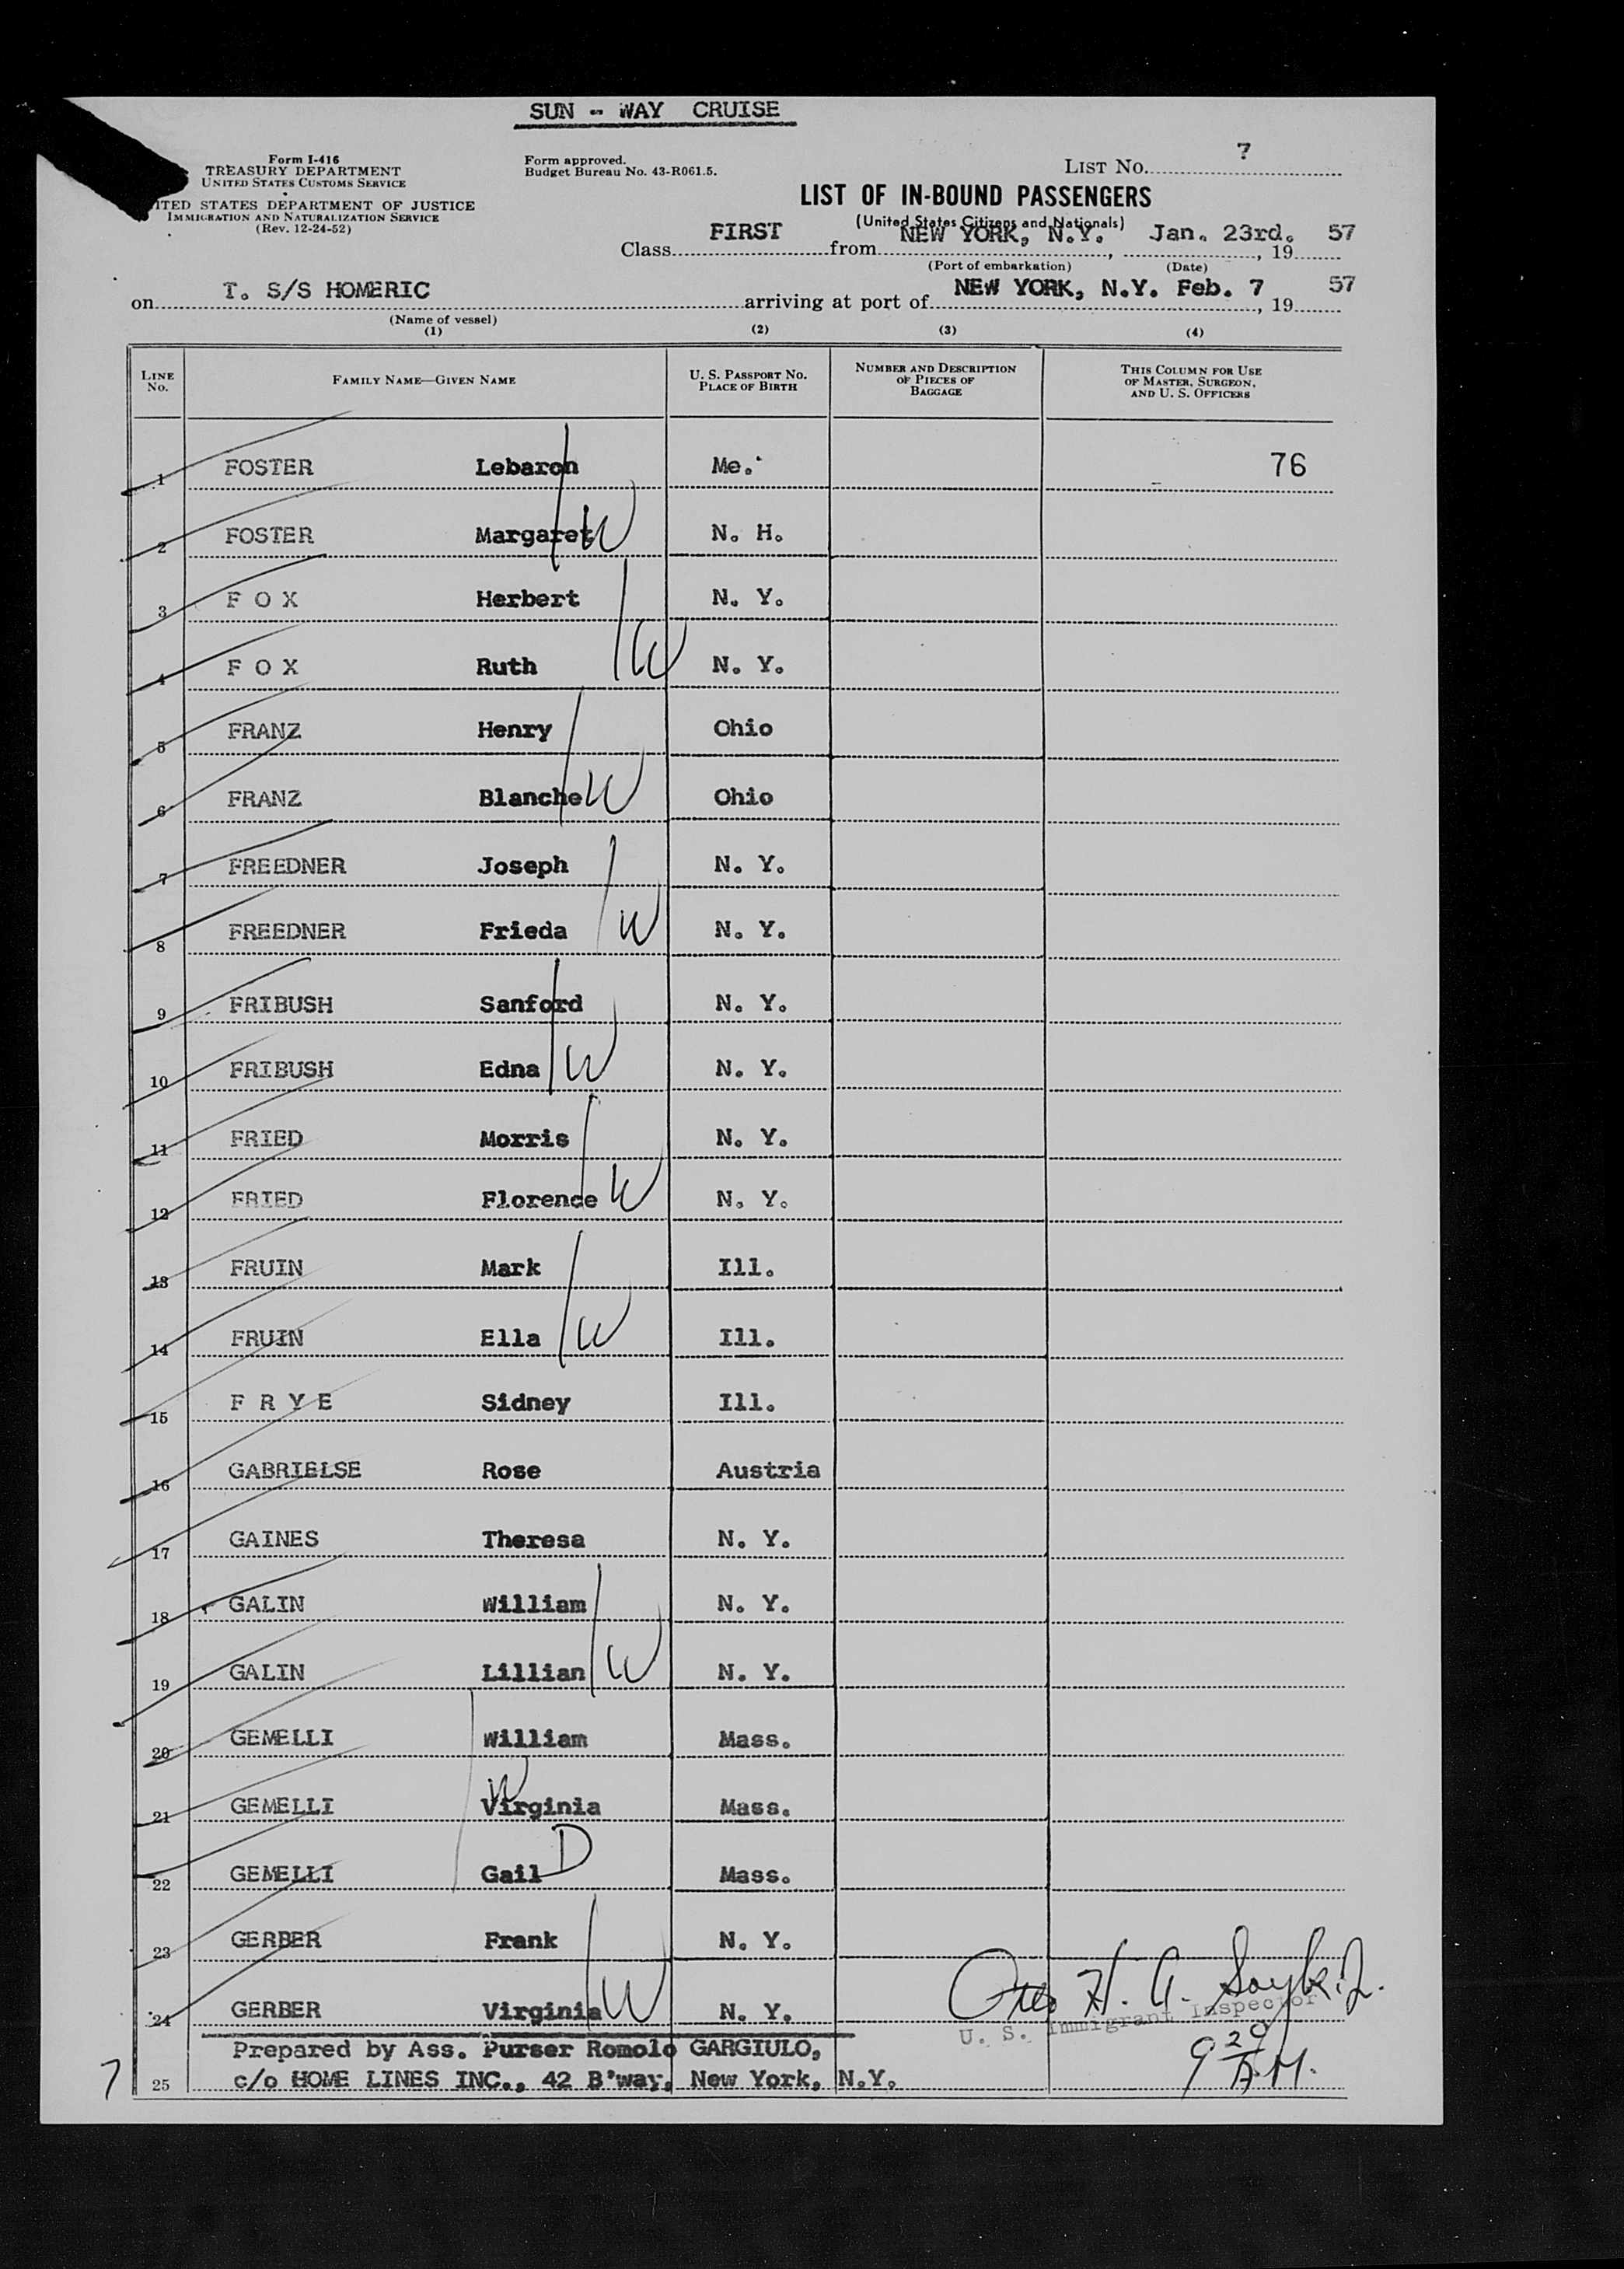 SUN - WAY CRUISE
Form I-416
TREASURY DEPARTMENT
UNITED STATES CUSTOMS SERVICE
ITED STATES DEPARTMENT OF JUSTICE
IMMIGRATION AND NATURALIZATION SERVICE
(Rev. 12-24-52)
Form approved.
Budget Bureau No. 43-R061.5.
LIST NO. 7
LIST OF IN-BOUND PASSENGERS
(United States Citizens and Nationals)
Class FIRST from NEW YORK, N.Y., Jan. 23rd., 19 57
(Port of embarkation) (Date)
on T. S/S HOMERIC arriving at port of NEW YORK, N.Y. Feb. 7, 19 57
(Name of vessel)
(1) (2) (3) (4)
LINE NO. FAMILY NAME—GIVEN NAME U. S. PASSPORT NO. PLACE OF BIRTH NUMBER AND DESCRIPTION OF PIECES OF BAGGAGE THIS COLUMN FOR USE OF MASTER, SURGEON, AND U. S. OFFICERS
1 FOSTER Lebaron Me. 76
2 FOSTER Margaret W N. H.
3 F O X Herbert N. Y.
4 F O X Ruth W N. Y.
5 FRANZ Henry Ohio
6 FRANZ Blanche W Ohio
7 FREEDNER Joseph N. Y.
8 FREEDNER Frieda W N. Y.
9 FRIBUSH Sanford N. Y.
10 FRIBUSH Edna W N. Y.
11 FRIED Morris N. Y.
12 FRIED Florence W N. Y.
13 FRUIN Mark Ill.
14 FRUIN Ella W Ill.
15 F R Y E Sidney Ill.
16 GABRIELSE Rose Austria
17 GAINES Theresa N. Y.
18 GALIN William N. Y.
19 GALIN Lillian W N. Y.
20 GEMELLI William Mass.
21 GEMELLI Virginia W Mass.
22 GEMELLI Gail D Mass.
23 GERBER Frank N. Y.
24 GERBER Virginia W N. Y.
H. A.
U. S. Immigrant Inspector
9 20 A.M.
Prepared by Ass. Purser Romolo GARGIULO,
25 c/o HOME LINES INC., 42 B'way, New York, N.Y.
7